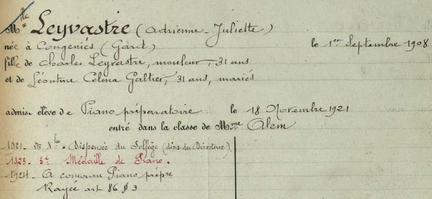 Mlle Leyvastre (Adrienne-Juliette)
née à Congeniès (Gard) le 1er Septembre 1908
fille de Charles Leyvastre, mouleur, 31 ans
et de Léontine Celina Galtier, 31 ans, mariés
admise élève de Piano préparatoire le 18 Novembre 1921
entré dans la classe de Mme Alem
1921 - 29 Xbre Dispensée du Solfège (don du Directeur)
1923 - 2e Médaille de Piano.
1924 - A concouru Piano prépre
Rayée art 86 § 3